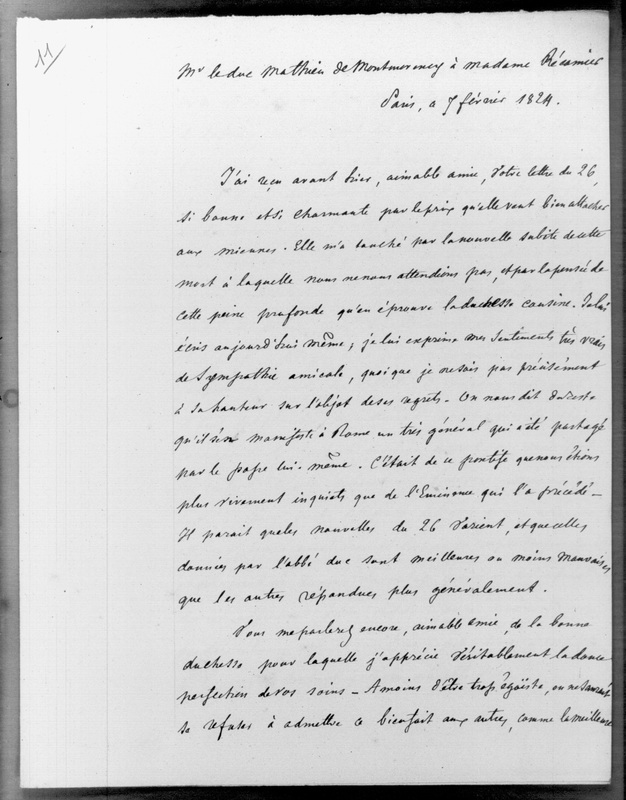 11
Mr le duc Mathieu de Montmorency à madame Récamier
Paris, a 7 février 1824.
J'ai reçu avant hier, aimable amie, votre lettre du 26,
si bonne et si charmante par le prix qu'elle veut bien attacher
aux miennes. Elle m'a touché par la nouvelle subite de cette
mort à laquelle nous ne nous attendions pas, et par la pensée de
cette peine profonde qu'en éprouve la duchesse cousine. Je lui
écris aujourd'hui même; je lui exprime mes sentiments très vrais
de sympathie amicale, quoique je ne sois pas précisément
à sa hauteur sur l'objet de ses regrets. On nous dit du reste
qu'il s'en manifeste à Rome un très général qui a été partagé
par le pape lui-même. C'était de ce pontife que nous étions
plus vivement inquiets que de l'Eminence qui l'a précédé –
Il parait que les nouvelles du 26 varient, et que celles
données par l'abbé duc sont meilleures ou moins mauvaises
que les autres répandues plus généralement.
Vous me parlerez encore, aimable amie, de la bonne
duchesse pour laquelle j'apprécie véritablement la douce
perfection de vos soins – A moins d'être trop égoïste, on ne saurait
se refuser à admettre ce bienfait aux autres, comme la meilleure